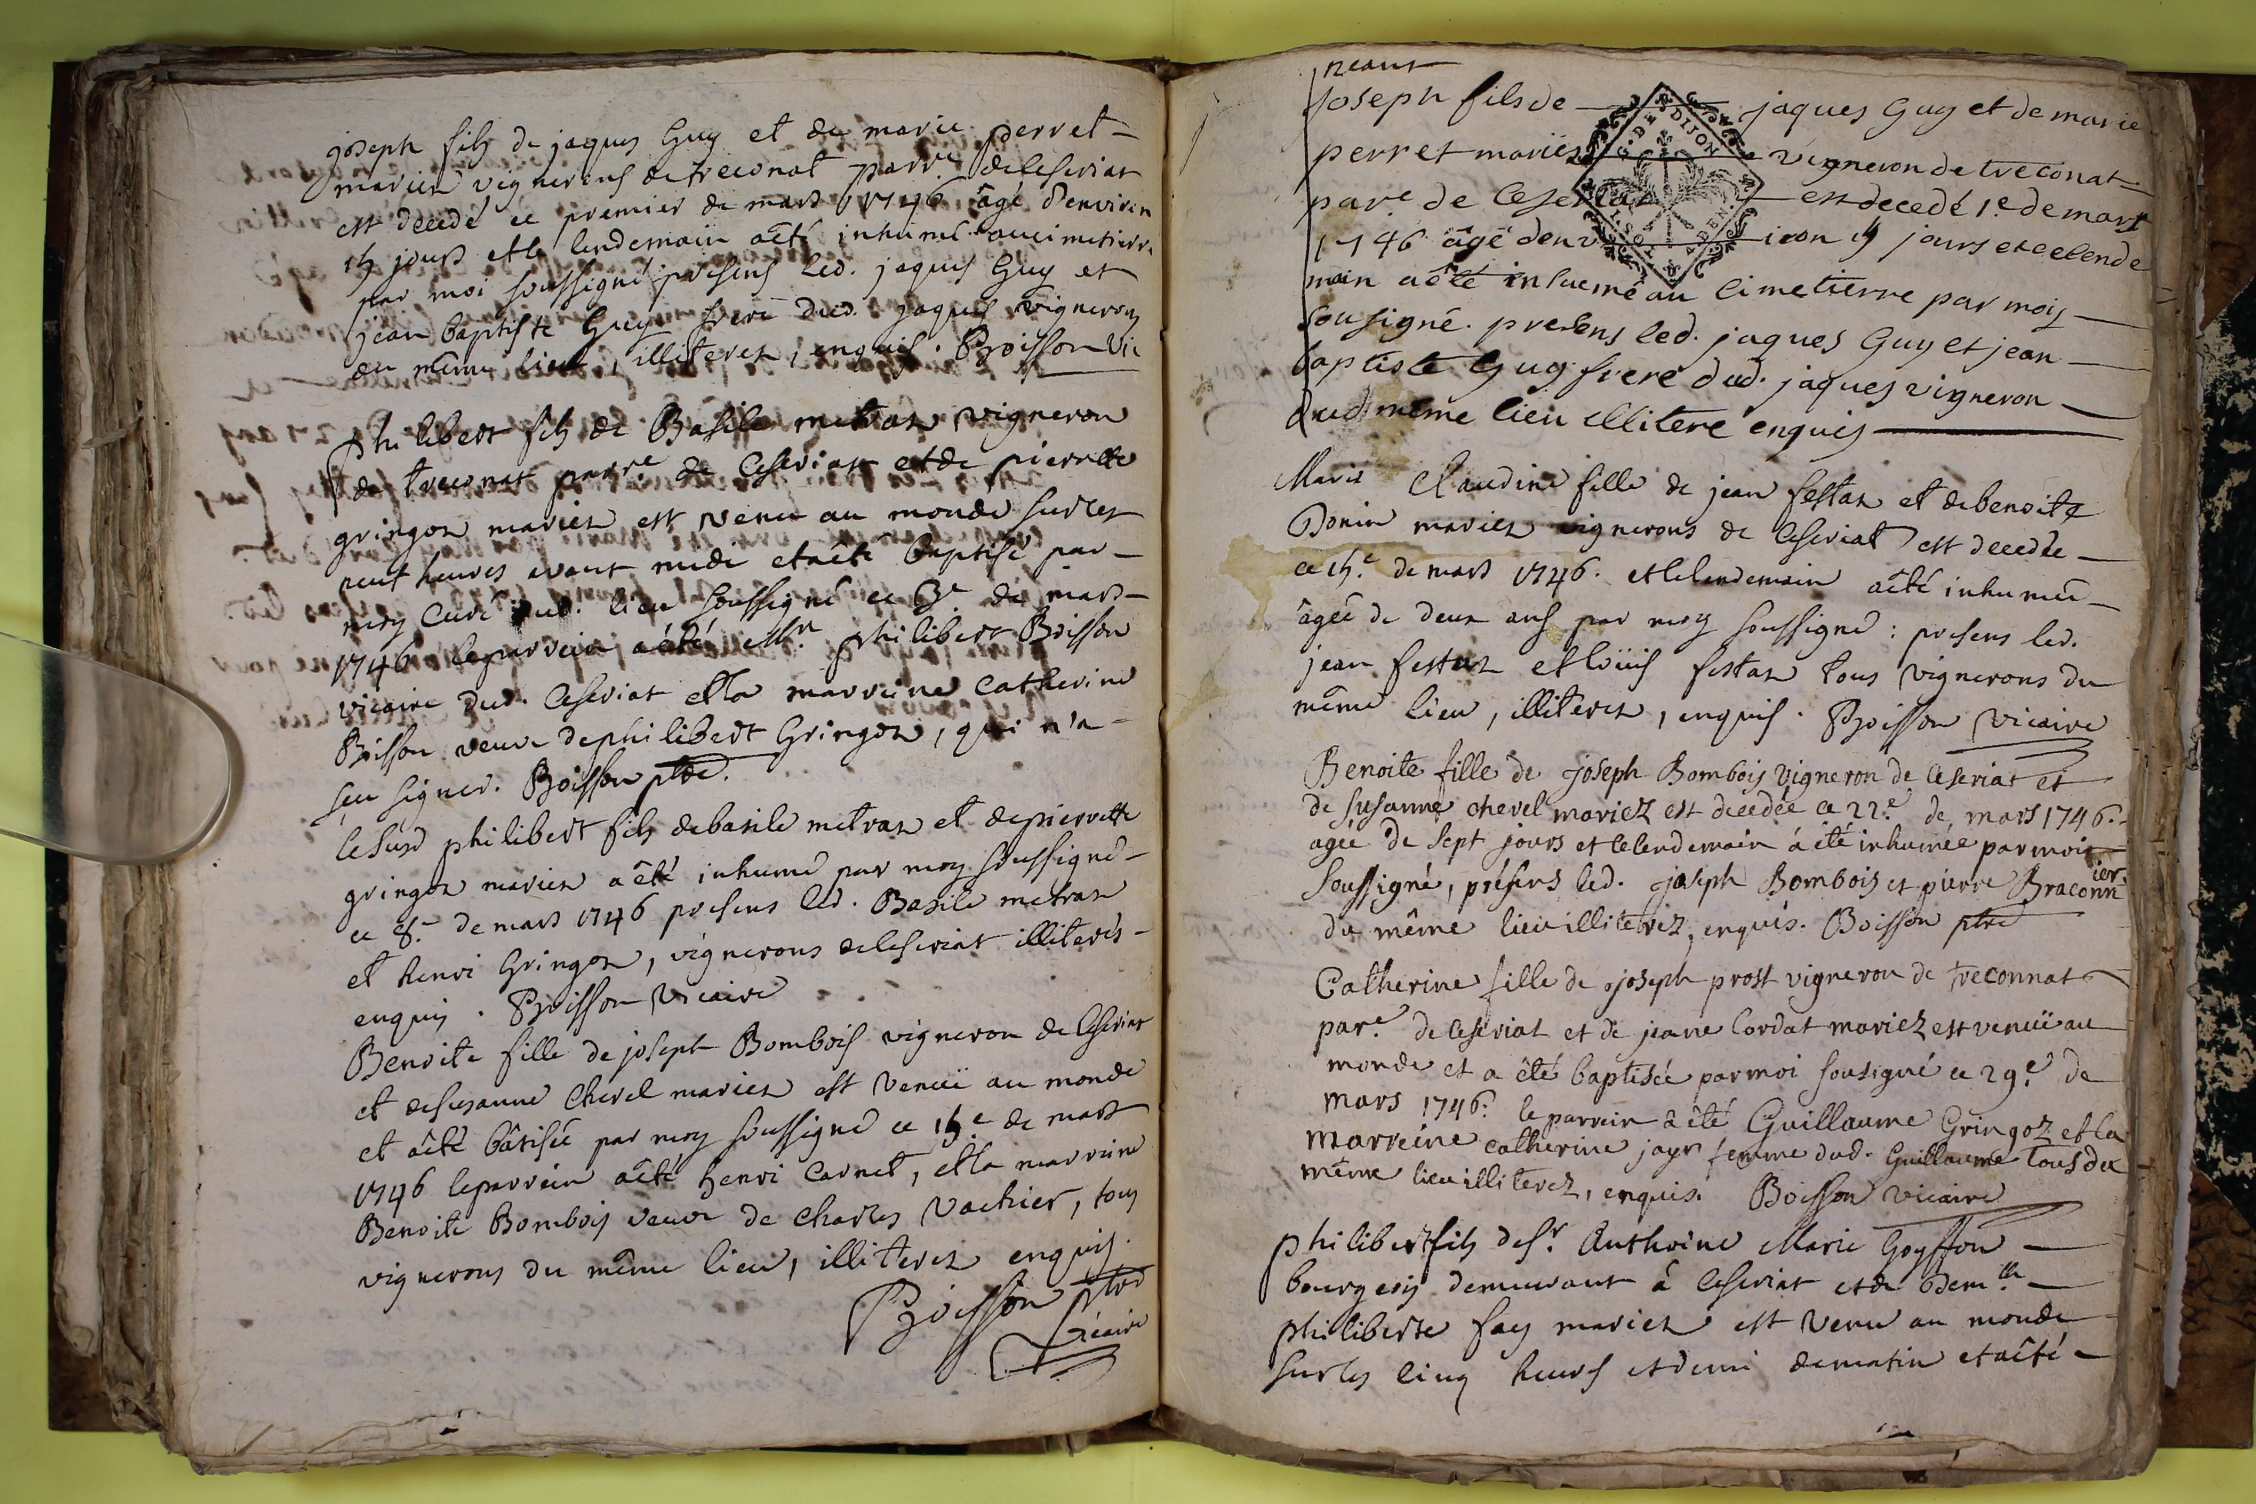 joseph fils de jaques Guy et de marie perret
mariez vignerons de treconat parr.e de Ceseriat
est decedé ce premier de mars 1746 âgé d'environ
15 jours et le lendemain aêté inhumé au cimetierre
par moi soussigné presens led. jaques Guy et
jean baptiste Guy frere dud. jaques vignerons
du même lieu, illiterez, enquis. Boisson Vic
Philibert fils de Basile metraz vigneron
de treconat parr.e de Ceseriat et de pierrette
gringoz mariez est venu au monde sur les
neuf heures avant midi et aêté baptisé par
moy curé dud. lieu soussigné ce 3.e de mars
1746 le parrein aêté Mr. philibert Boisson
vicaire dud. Ceseriat et la marreine Catherine
Boisson veuve de philibert Gringoz, qui n'a
seu signer. Boisson ptre.
le susd philibert fils de basile metraz et de pierrette
gringoz mariez aêté inhumé par moy soussigné
ce 8.e de mars 1746 presens led. Basile metraz
et henri Gringoz, vignerons de Ceseriat illiterés
enquis. Boisson Vicaire
Benoite fille de joseph Bombois vigneron de Ceseriat
et de susanne Chevel mariez est venuë au monde
et aêté bâtisée par moy soussigné ce 15.e de mars
1746 le parrein aêté henri Carnet, et la marreine
Benoite Bombois veuve de Charles Vachier, tous
vignerons du même lieu, illiterez enquis.
Boisson ptre
Vicaire
neant
Joseph fils de jaques Guy et de marie
perret mariés vigneron de treconat
par.e de Ceseriat est decedé 1.e de mars
1746 âgé denviron 15 jours et le lende
main aêté inhumé au cimetierre par moy
sousigné. presens led. jaques Guy et jean
baptiste Guy frere dud. jaques vigneron
dud même lieu illiteré enquis
G. DE DIJON
Marie Claudine fille de jean festaz et de benoite
Donin mariez vignerons de Ceseriat est decedée
ce 15.e de mars 1746. et le lendemain aêté inhumée
âgée de deux ans par moy soussigné: presens led.
jean festaz et loüis festaz tous vignerons du
même lieu, illiterez, enquis. Boisson vicaire
Benoite fille de joseph Bombois vigneron de Ceseriat et
de susanne chevel mariez est decedée ce 22.e de mars 1746.
agée de sept jours et le lendemain á été inhumée par moi
soussigné, présens led. joseph Bombois et pierre Braconnier
du même lieu illiterez, enquis. Boisson ptre
Catherine fille de joseph prost vigneron de treconnat
par.e de Ceseriat et de jeane Cordat mariez est venuë au
monde et a été baptisée par moi sousigné ce 29.e de
mars 1746. le parrein a êté Guillaume Gringoz et la
marreine catherine jayr femme dud. Guillaume tous du
même lieu illiterez, enquis. Boisson vicaire
philibert fils de Sr. Anthoine Marie Goyffon
bourgeois demeurant à Ceseriat et de Dem.lle
philiberte fay mariez est venu au monde
sur les cinq heures et demi de matin et aêté